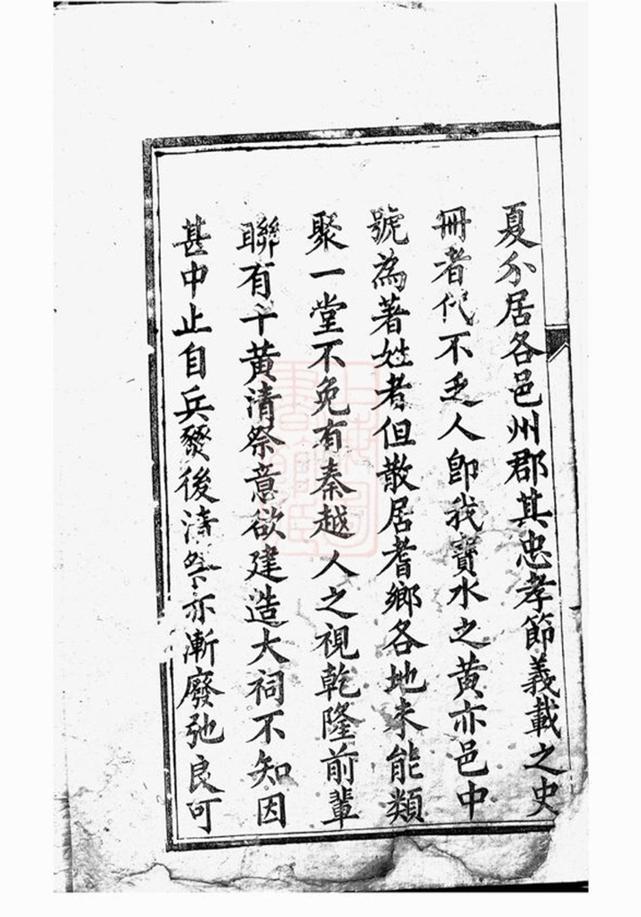 夏分居各邑州郡其忠孝節義載之史
冊者代不乏人即我寶水之黃亦邑中
號為著姓者但散居耆鄉各地未能類
聚一堂不免有秦越人之視乾隆前輩
聯有千黃清祭意欲建造大祠不知因
甚中止自兵發後清祭亦漸廢弛良可